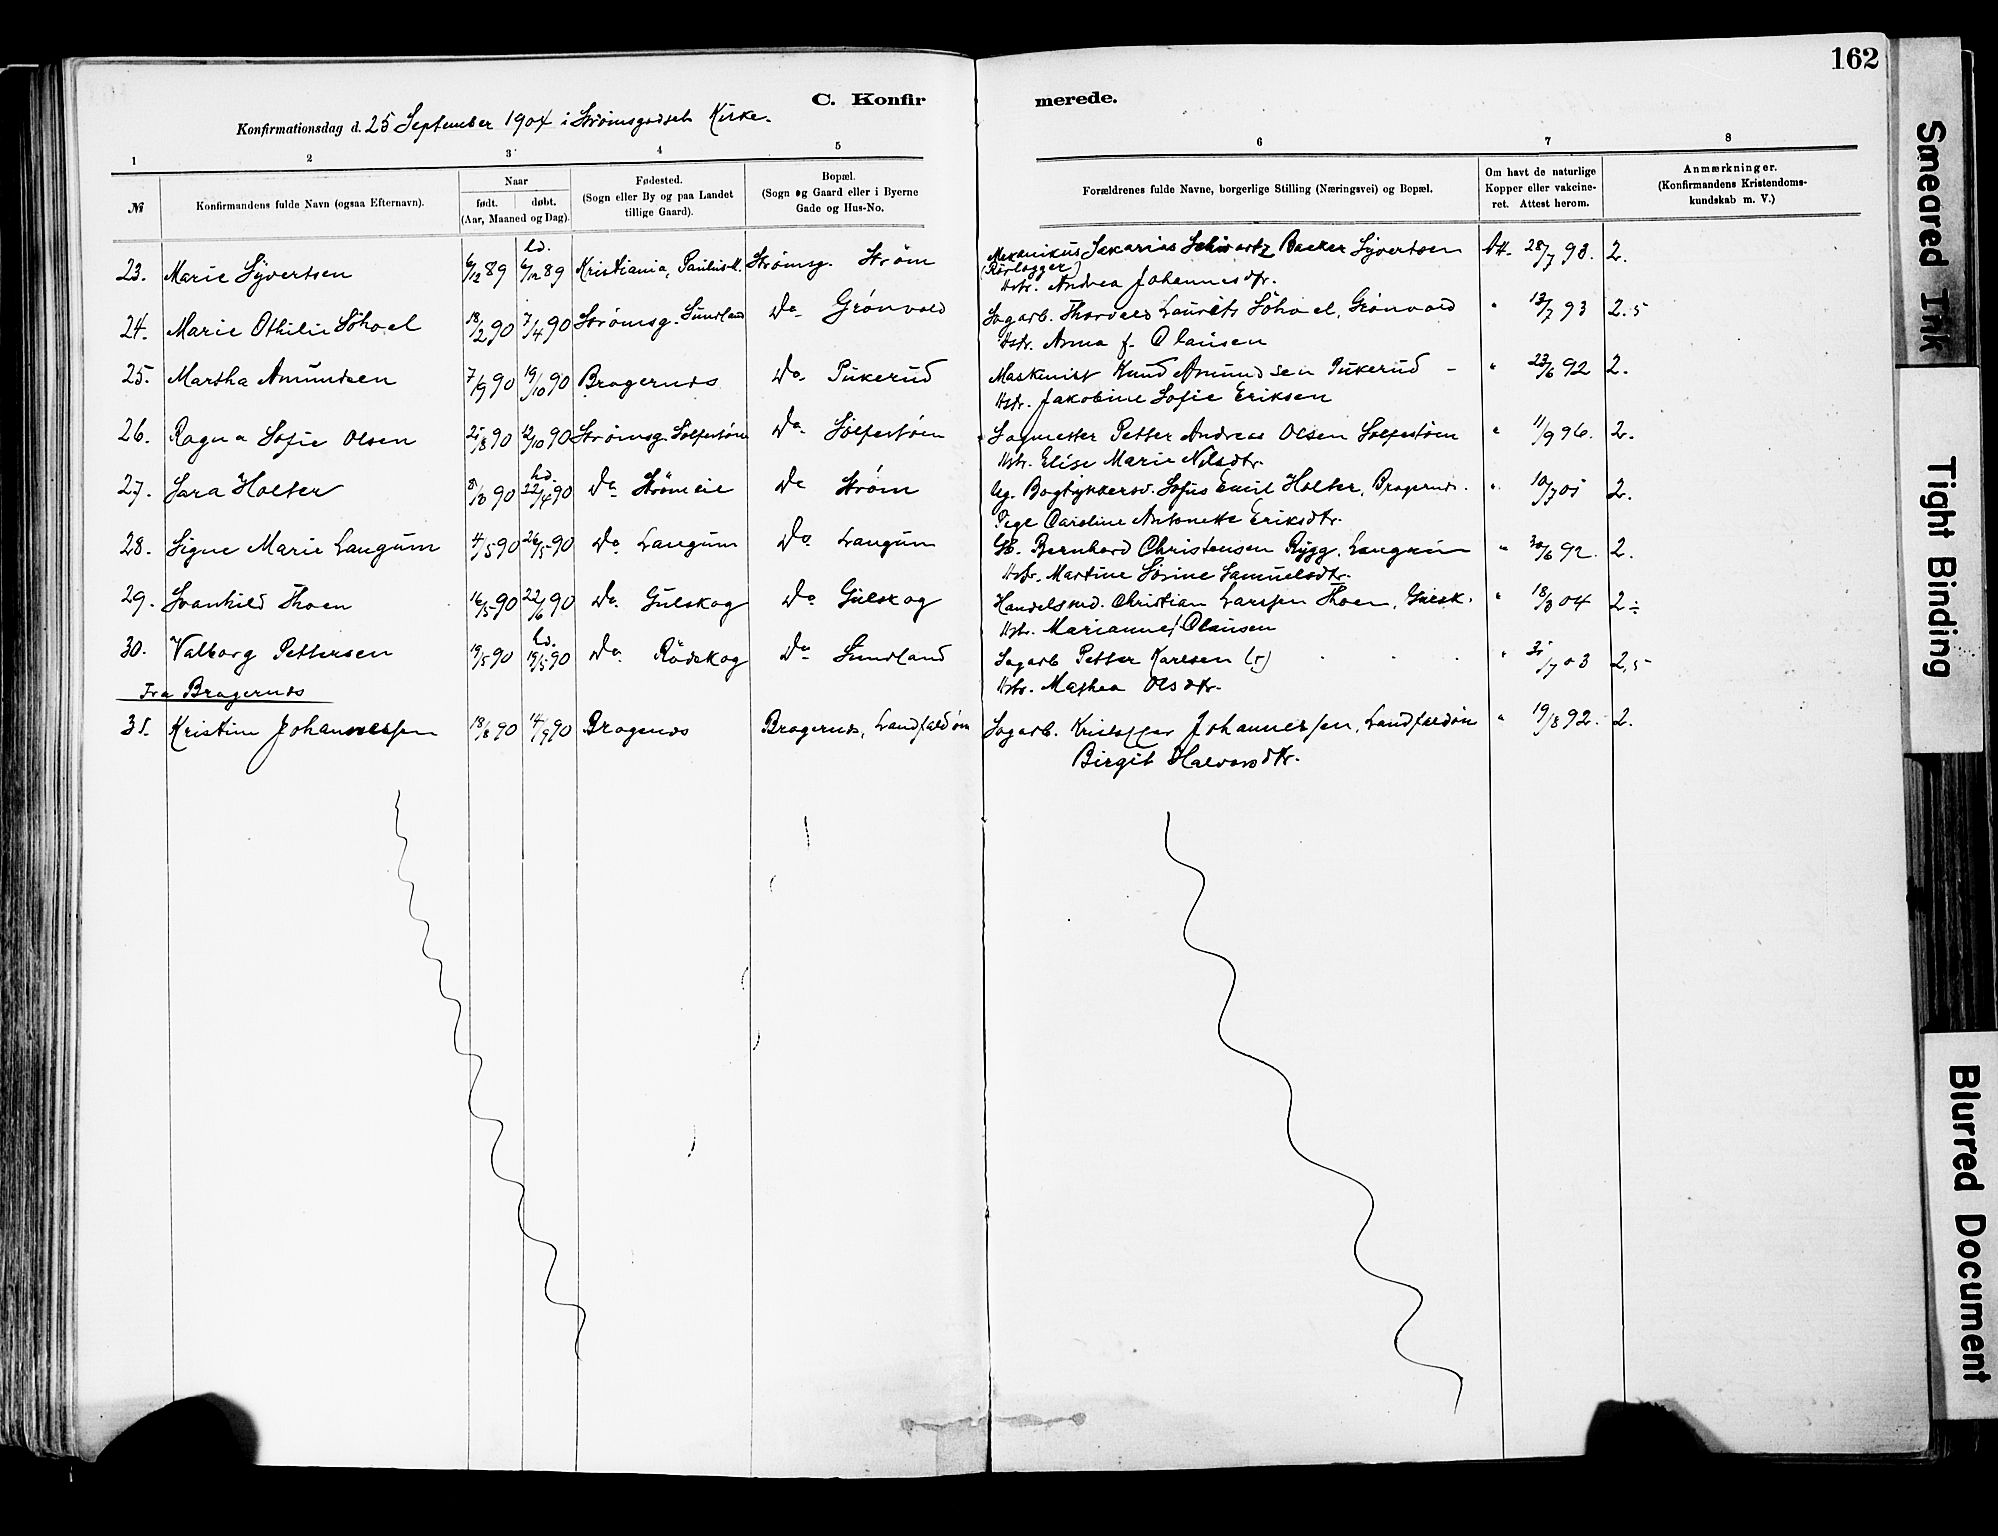 162
C. Konfir merede.
Konfirmationsdag d. 25 September 1904 i Strømsgodset Kirke.
1 2 3 4 5 6 7 8
№ Konfirmandens fulde Navn (ogsaa Efternavn). Naar født. døbt. (Aar, Maaned og Dag). Fødested. (Sogn eller By og paa Landet tillige Gaard). Bopæl. (Sogn og Gaard eller i Byerne Gade og Hus-No. Forældrenes fulde Navne, borgerlige Stilling (Næringsvei) og Bopæl. Om havt de naturlige Kopper eller vakcineret. Attest herom. Anmærkninger. (Konfirmandens Kristendomskundskab m. V.)
23. Marie Syvertsen 6/12 89 hd. 6/12 89 Kristiania, Paulus-M. Strømsg. Strøm Mekanikus Sakarias Schwartz Backer Syvertsen Att. 28/7 93. 2.
(Rørlægger) Hstr. Andrea Johannesdtr.
24. Marie Othilie Söhoel 18/2 90 7/4 90 Strømsg. Sundland Do Grønvold Sagarb. Thorvald Laurits Söhoel, Grønvold " 13/7 93 2.5
Hstr. Anna f. Olausen
25. Martha Amundsen 7/9 90 19/10 90 Bragernes Do Pukerud Maskinist Knud Amundsen Pukerud - " 23/6 92 2.
Hstr. Jakobine Sofie Eriksen
26. Ragna Sofie Olsen 25/8 90 12/10 90 Strømsg. Solfestøen Do Solfestøen Sagmester Petter Andreas Olsen Solfestøen " 11/9 96. 2.
Hstr. Elise Marie Nilsdtr.
27. Sara Holter 8/3 90 hd. 22/4 90 Do Strømeie Do Strøm Ug. Bogtykkersv. Sofus Emil Holter, Bragernes. " 10/7 05 2.
Pige Caroline Antonette Eriksdtr.
28. Signe Marie Langum 4/5 90 26/5 90 Do Langum Do Langum Gb. Bernhard Christensen Rygg, Langum " 30/6 92. 2.
Hstr. Martine Sørine Samuelsdtr.
29. Svanhild Thoen 16/5 90 22/6 90 Do. Gulskog Do Gulskog Handelsmd. Christian Larssen Thoen, Gulsk. " 18/3 04 2÷
Hstr. Marianne f Olausen
30. Valborg Pettersen 19/5 90 hd. 19/5 90 Do. Rödskog Do Sundland Sagarb Petter Karlsen " /7 03 2,5
Hstr. Mathea Olsdtr.
Fra Bragernes
31. Kristine Johannessen 18/8 90 14/9 90 Bragernes Bragernes, Landfaldøen Sagarb. Kristoffer Johannessen, Landfaldöen " 19/8 92. 2.
Birgit Halvorsdtr.
Smeared Ink
Tight Binding
Blurred Document